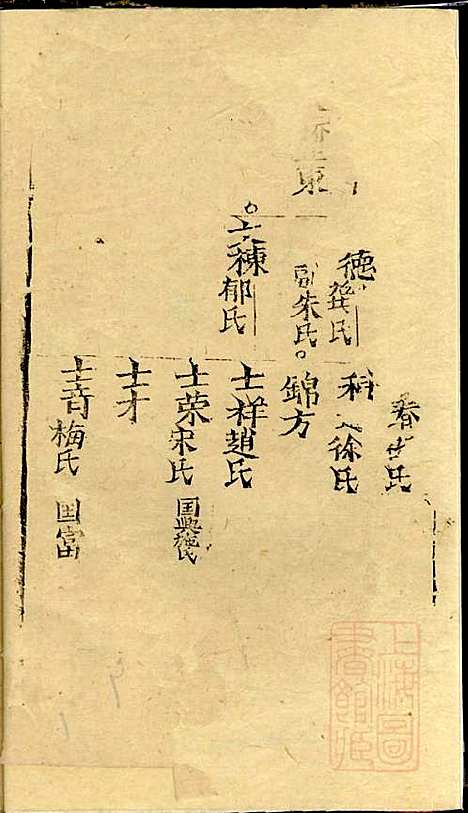 春 氏
德 龔氏
副朱氏
科 徐氏
錦方
棟 郁氏
士祥 趙氏
士荣 宋氏 国興 氏
士才
士奇 梅氏 国富
上海圖書館藏